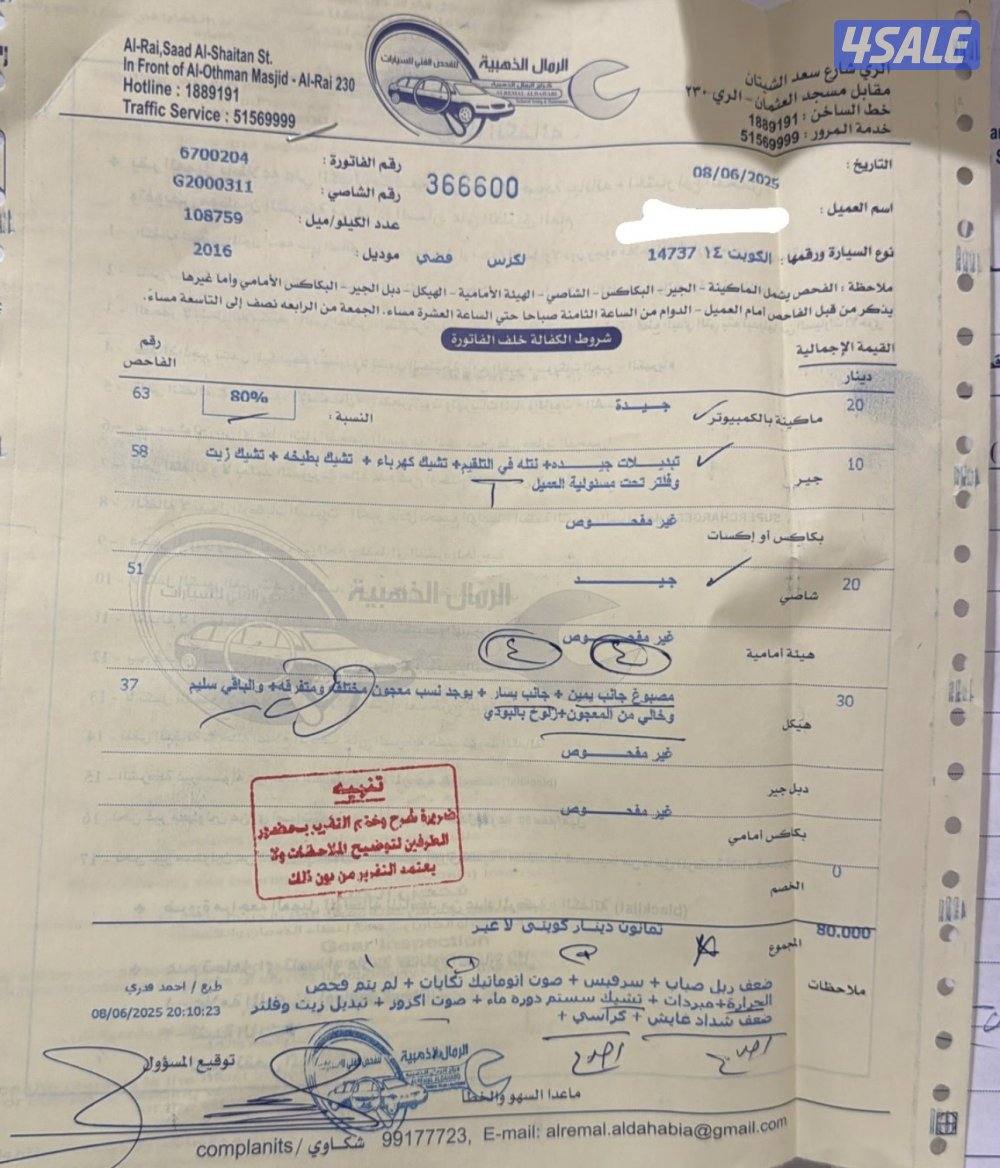 4SALE
Al-Rai,Saad Al-Shaitan St.
In Front of Al-Othman Masjid - Al-Rai 230
Hotline : 1889191
Traffic Service : 51569999
الرمال الذهبية
للفحص الفني للسيارات
ALREMAL ALDAHABI
الري شارع سعد الشيتان
مقابل مسجد العثمان - الري ٢٣٠
خط الساخن : 1889191
خدمة المرور : 51569999
التاريخ : 08/06/2025
رقم الفاتورة : 6700204
366600
رقم الشاصي : G2000311
اسم العميل :
عدد الكيلو/ميل : 108759
نوع السيارة ورقمها : الكويت ١٤ 14737 لكزس فضي
موديل : 2016
ملاحظة : الفحص يشمل الماكينة - الجير - البكاكس - الشاصي - الهيئة الأمامية - الهيكل - دبل الجير - البكاكس الأمامي وأما غيرها
يذكر من قبل الفاحص أمام العميل - الدوام من الساعة الثامنة صباحا حتي الساعة العشرة مساء. الجمعة من الرابعه نصف إلى التاسعة مساءً.
شروط الكفالة خلف الفاتورة
القيمة الإجمالية
دينار
رقم الفاحص
20 ماكينة بالكمبيوتر جيدة النسبة : 80% 63
10 جير تبديلات جيده+ نتله في التلقيم+ تشيك كهرباء + تشيك بطيخه + تشيك زيت 58
وفلتر تحت مسئولية العميل
بكاكس أو إكسات غير مفحوص
20 شاصي جيد 51
هيئة أمامية غير مفحوص
٤ ٤
30 هيكل مصبوغ جانب يمين + جانب يسار + يوجد نسب معجون مختلفه ومتفرقه+ والباقي سليم 37
وخالي من المعجون+زلوخ بالبودي
دبل جير غير مفحوص
بكاكس امامي غير مفحوص
تنبيه
ضرورة شرح وختم التقرير بحضور
الطرفين لتوضيح الملاحظات ولا
يعتمد التقرير من دون ذلك
الخصم 0
80.000 المجموع ثمانون دينار كويتى لا غير
ملاحظات ضعف ربل صباب + سرفيس + صوت اتوماتيك تكايات + لم يتم فحص
الحرارة+مبردات + تشيك سستم دوره ماء + صوت اكزوز + تبديل زيت وفلتر
ضعف شداد عايش + كراسي +
طبع / احمد قدري
08/06/2025 20:10:23
توقيع المسؤول
الرمال الذهبية
ماعدا السهو والخطأ
complanits / شكاوي 99177723, E-mail: alremal.aldahabia@gmail.com